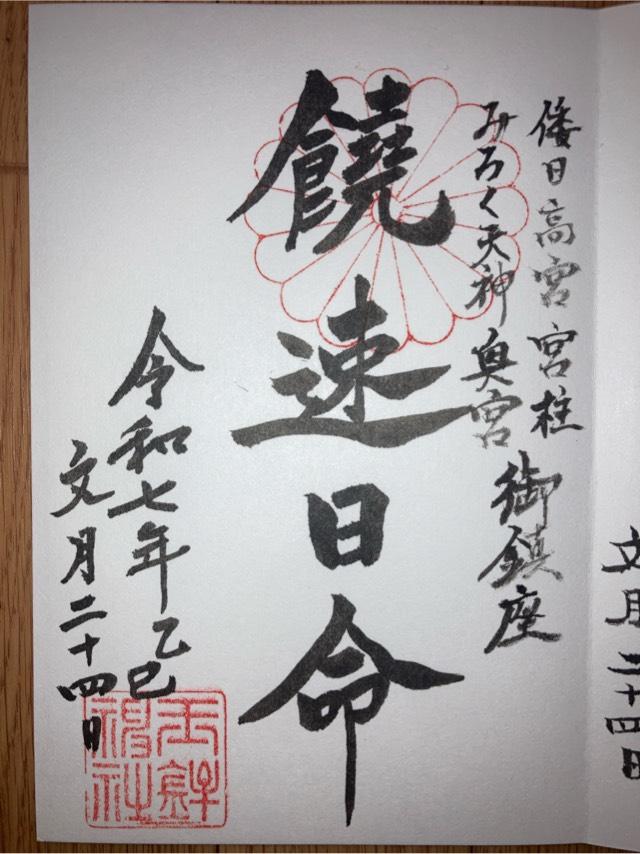 倭日高宮宮柱
みろく天神奥宮
御鎮座
饒速日命
令和七年乙巳
文月二十四日
文月二十四日